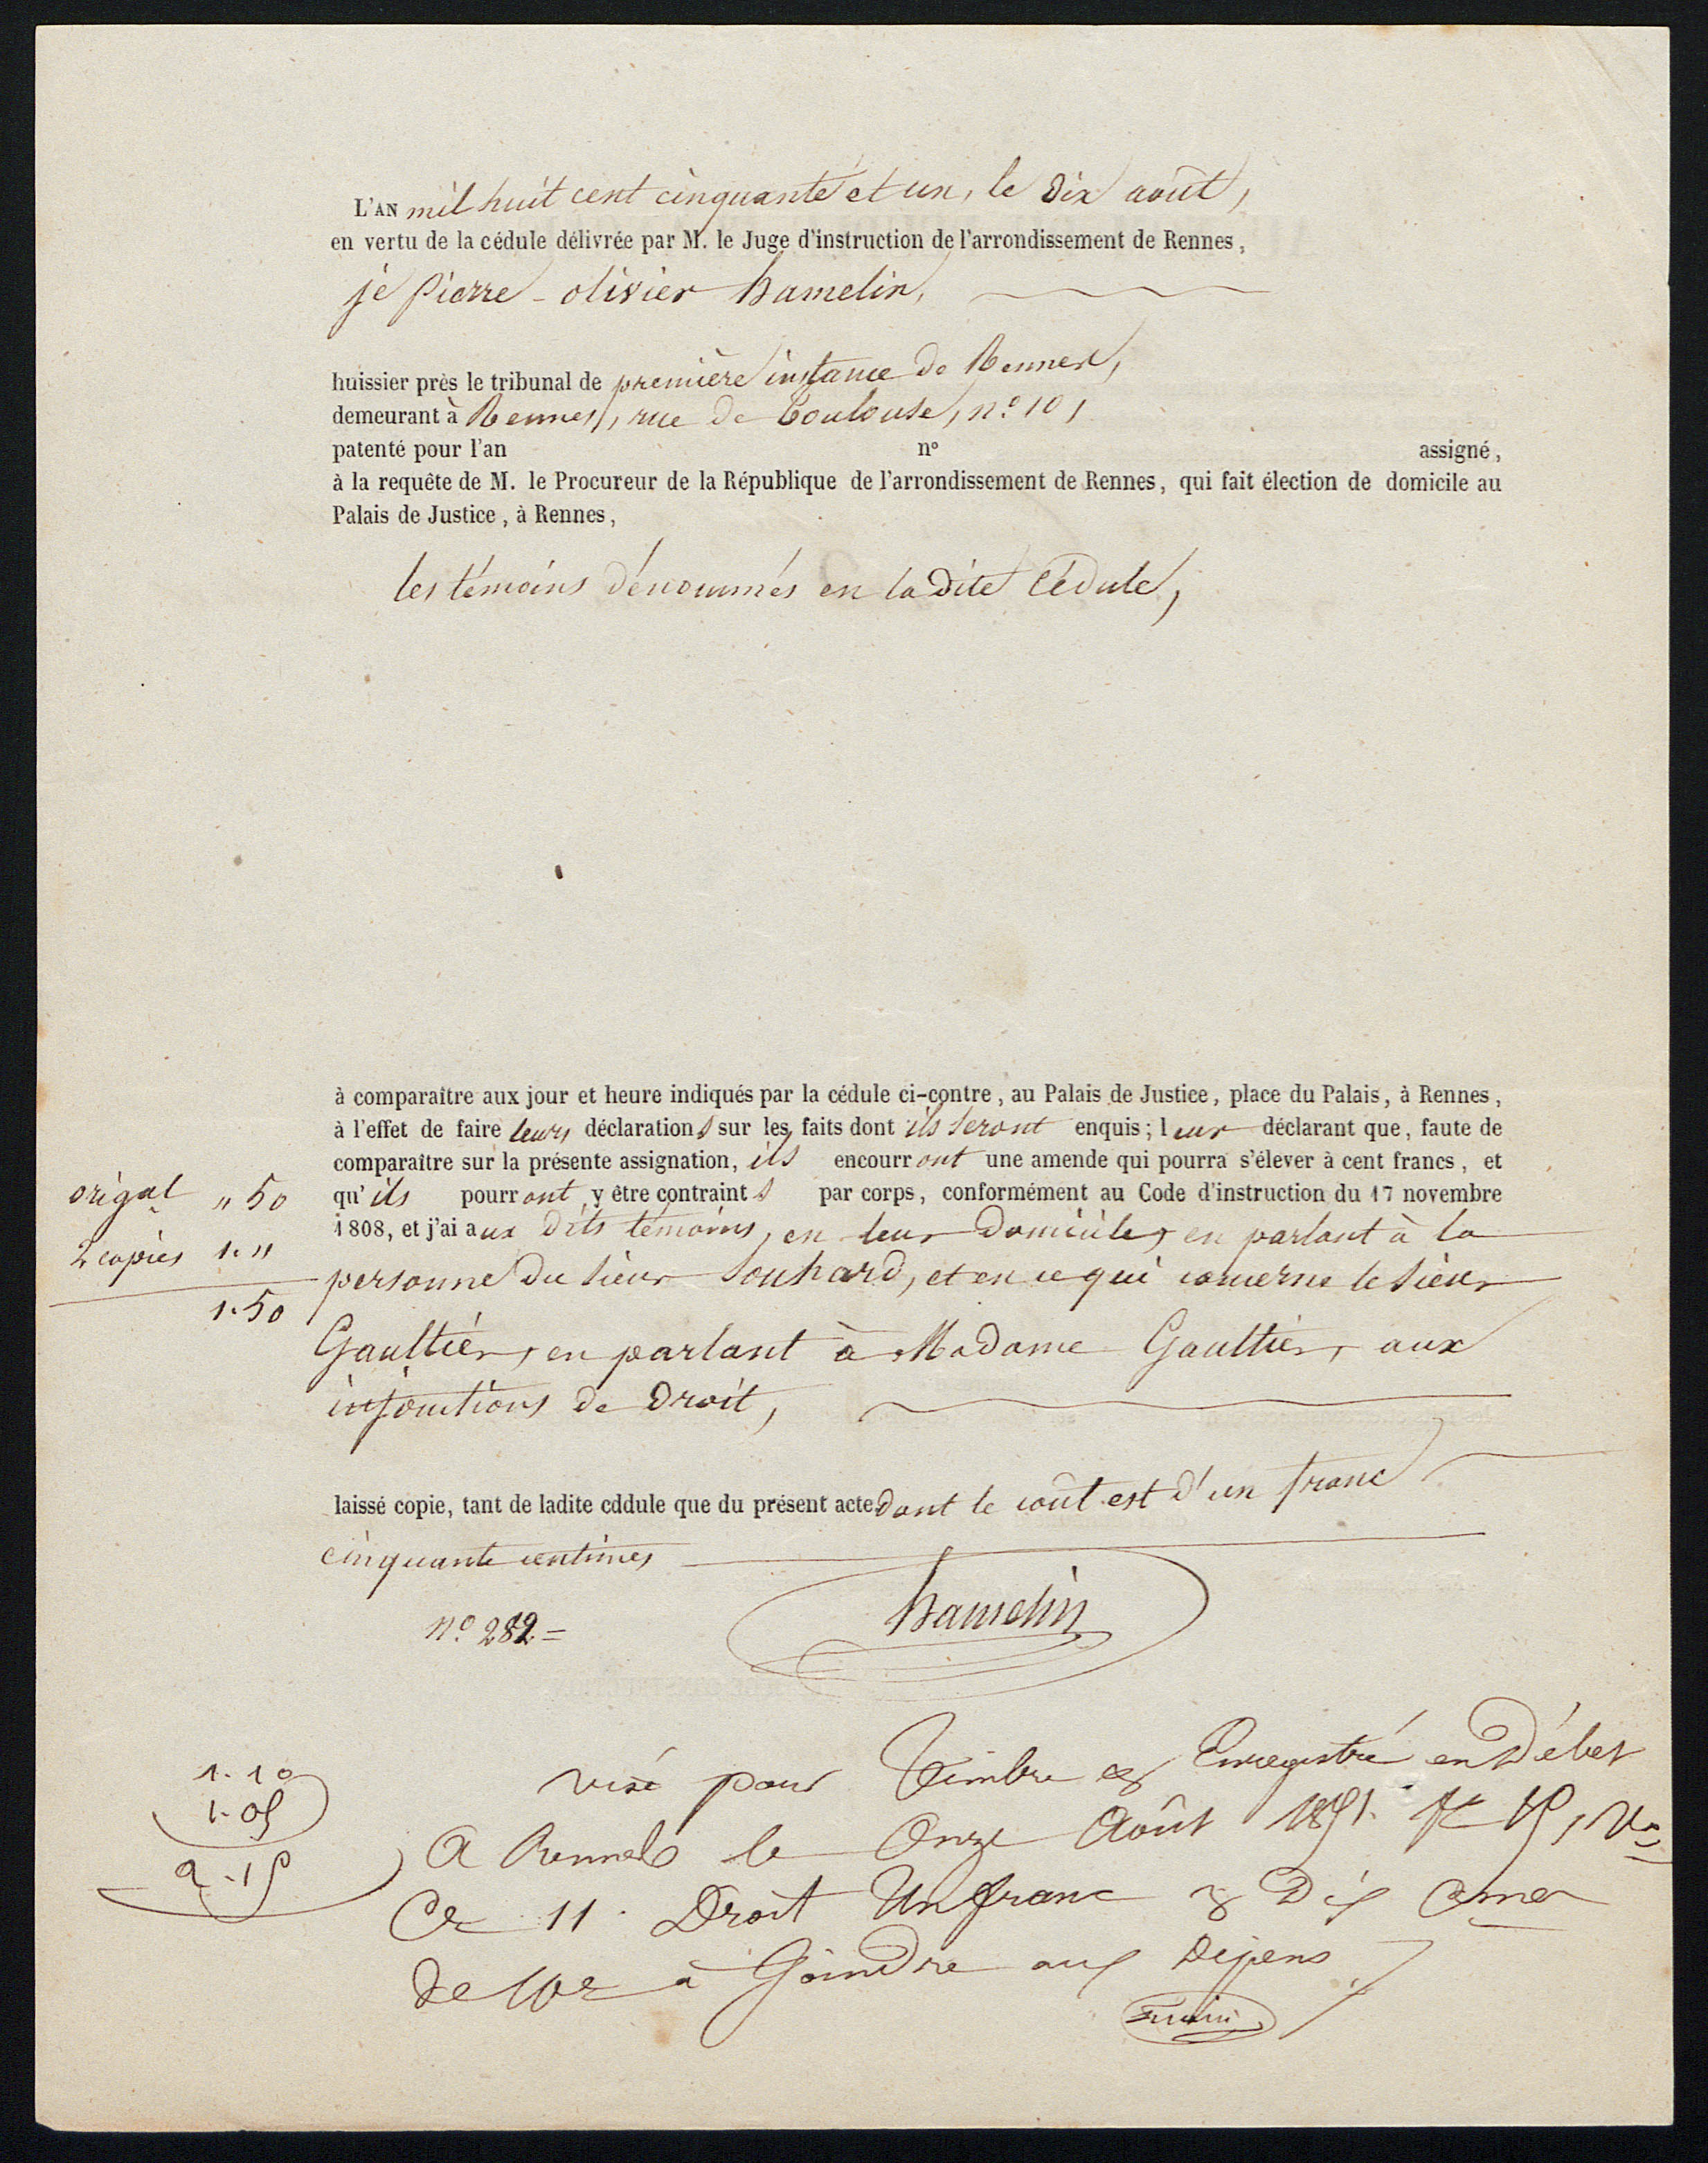 L'AN mil huit cent cinquante et un, le dix août,
en vertu de la cédule délivrée par M. le Juge d'instruction de l'arrondissement de Rennes,
je Pierre-olivier hamelin,
huissier près le tribunal de première instance de Rennes,
demeurant à Rennes, rue de Toulouse, n.o 10,
patenté pour l'an no assigné,
à la requête de M. le Procureur de la République de l'arrondissement de Rennes, qui fait élection de domicile au
Palais de Justice, à Rennes,
les témoins dénommés en la dite Cédule,
à comparaître aux jour et heure indiqués par la cédule ci-contre, au Palais de Justice, place du Palais, à Rennes,
à l'effet de faire leurs déclarations sur les faits dont ils seront enquis; leur déclarant que, faute de
comparaître sur la présente assignation, ils encourront une amende qui pourra s'élever à cent francs, et
qu'ils pourront y être contraints par corps, conformément au Code d'instruction du 17 novembre
1808, et j'ai aux dits témoins, en leur domicile, en parlant à la
personne du sieur Souhard, et en ce qui concerne le sieur
Gaultier, en parlant à Madame Gaultier, aux
injonctions de droit,
laissé copie, tant de ladite cddule que du présent acte dont le coût est d'un franc
cinquante centimes
origal " 50
2 copies 1. "
1.50
hamelin
n.o 282=
1.10
1.05
2.15
visé pour Timbre & Enregistré en Débet
A Rennes le Onze Août 1851.
Ce 11. Droit Un franc & Dix
à Joindre aux Dépens